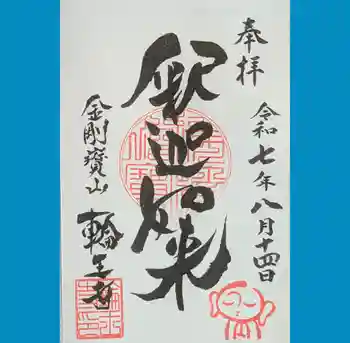 奉拝
令和七年八月十四日
釈迦如来
金剛寶山
輪王寺